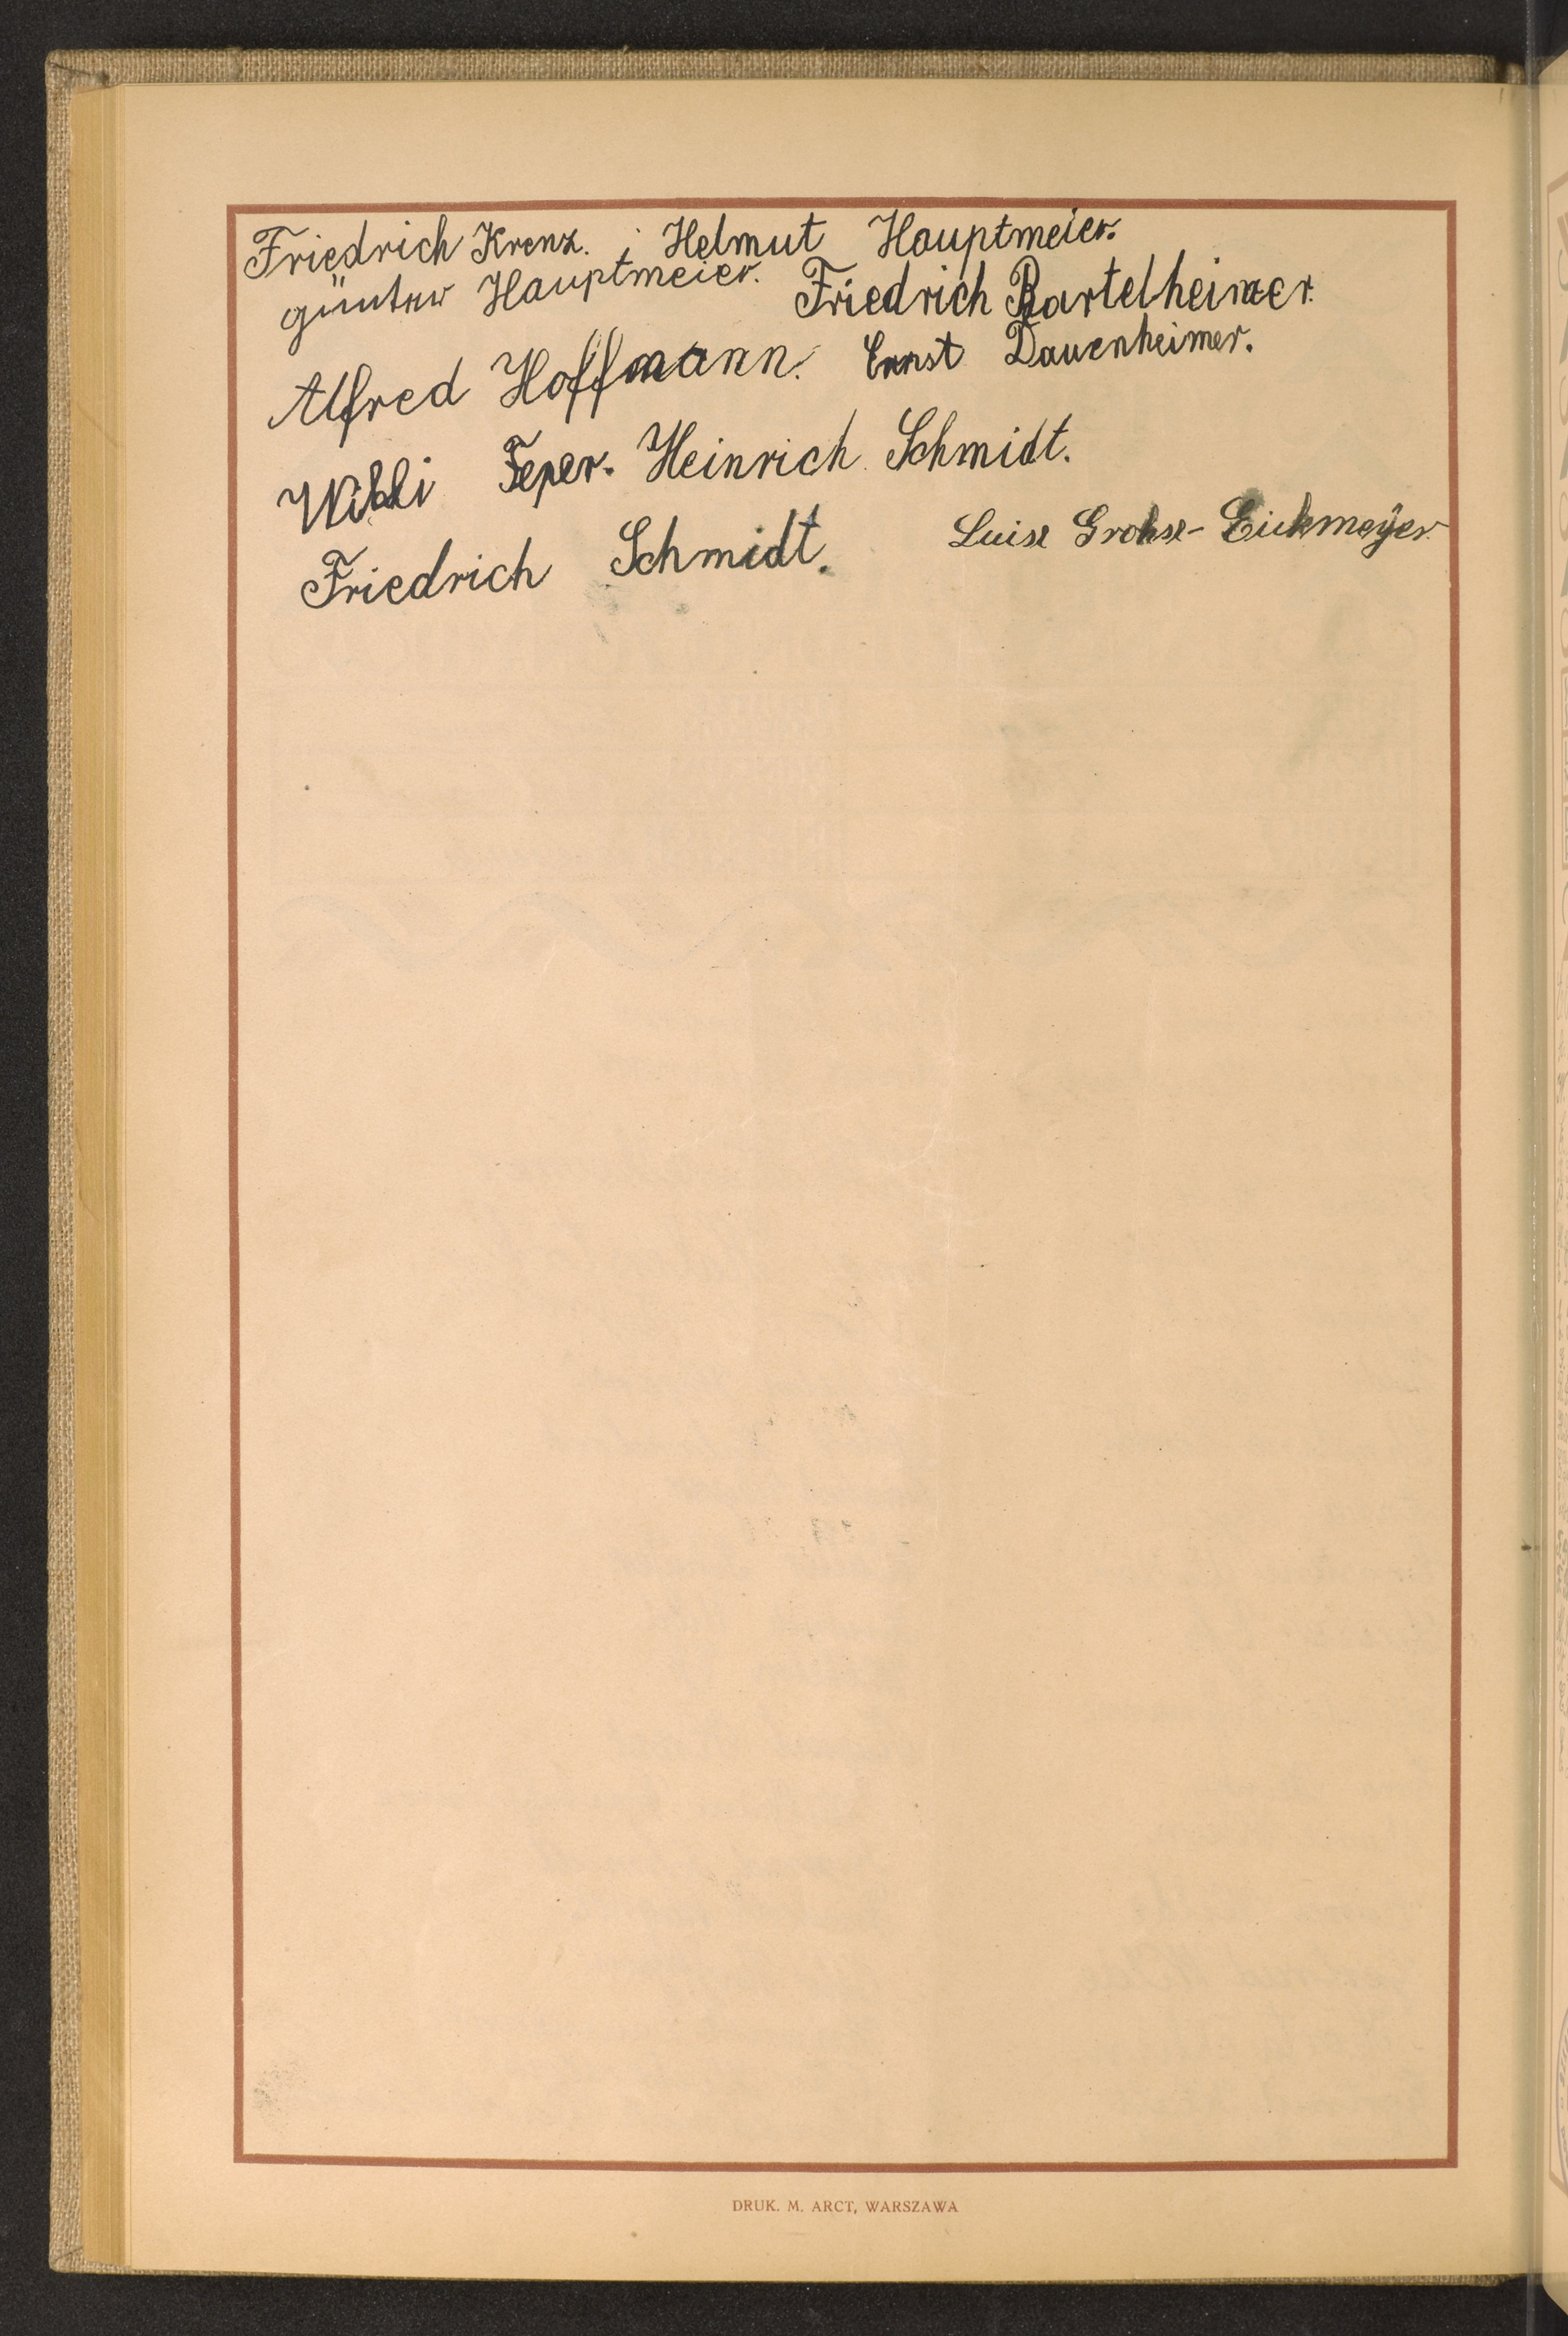 Friedrich Krenz. Helmut Hauptmeier.
günter Hauptmeier. Friedrich Bartelheimer.
Alfred Hoffmann. Ernst Dauenheimer.
Willi Feper. Heinrich Schmidt.
Friedrich Schmidt. Luise Grohse-Eickmeyer
DRUK. M. ARCT, WARSZAWA